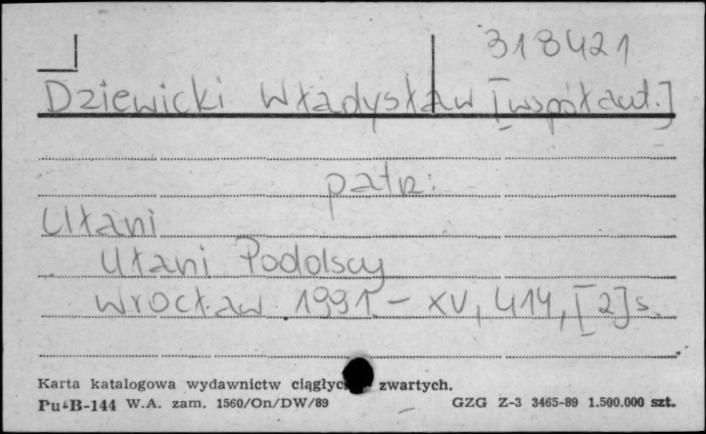 318421
Dziewicki Władysław [współaut.]
patrz:
Ułani
Ułani Podolscy
Wrocław 1991. – XV, 414, [2] s.
Karta katalogowa wydawnictw ciągłyc zwartych.
Pu-B-144 W.A. zam. 1560/On/DW/89 GZG Z-3 3465-89 1.500.000 szt.